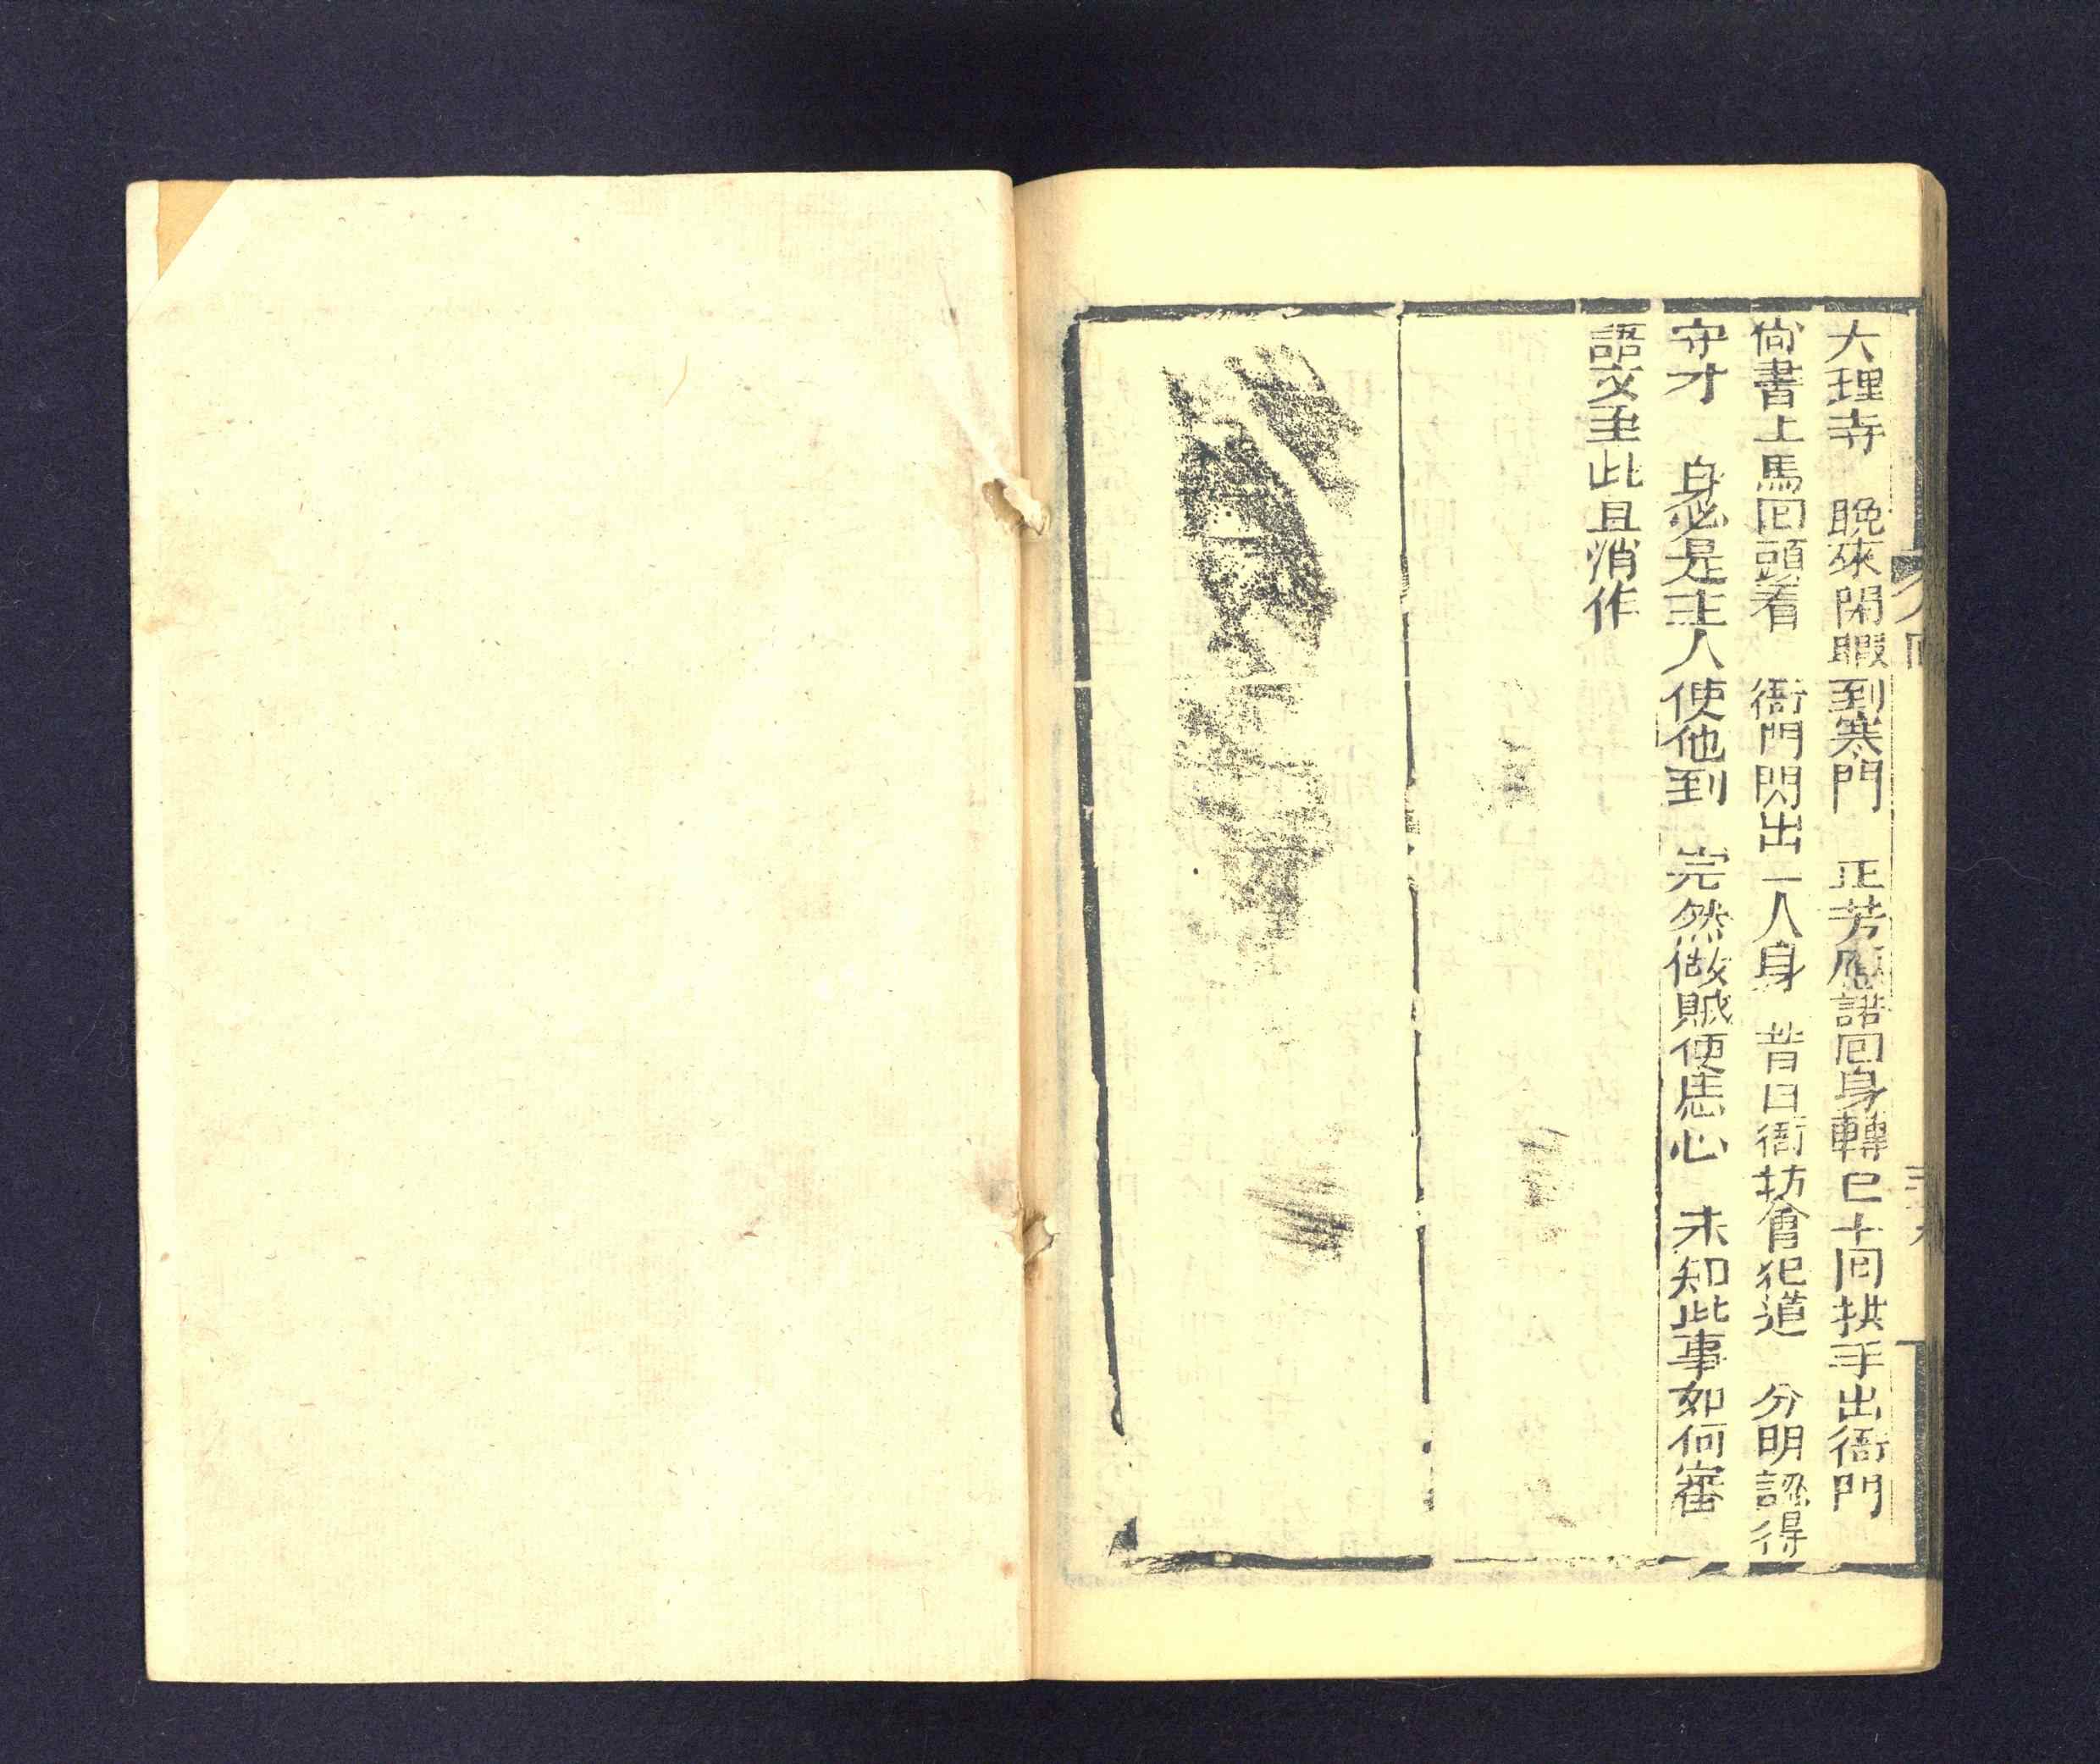 大理寺 晚來閑暇到寒門 正芳應諾回身轉 巳十同拱手出衙門
尚書上馬回頭看 衙門閃出一人身 昔日衙坊會犯道 分明認得
守才 身必是主人使他到 完然做賊便恁心 未知此事如何審
語文至此且消作